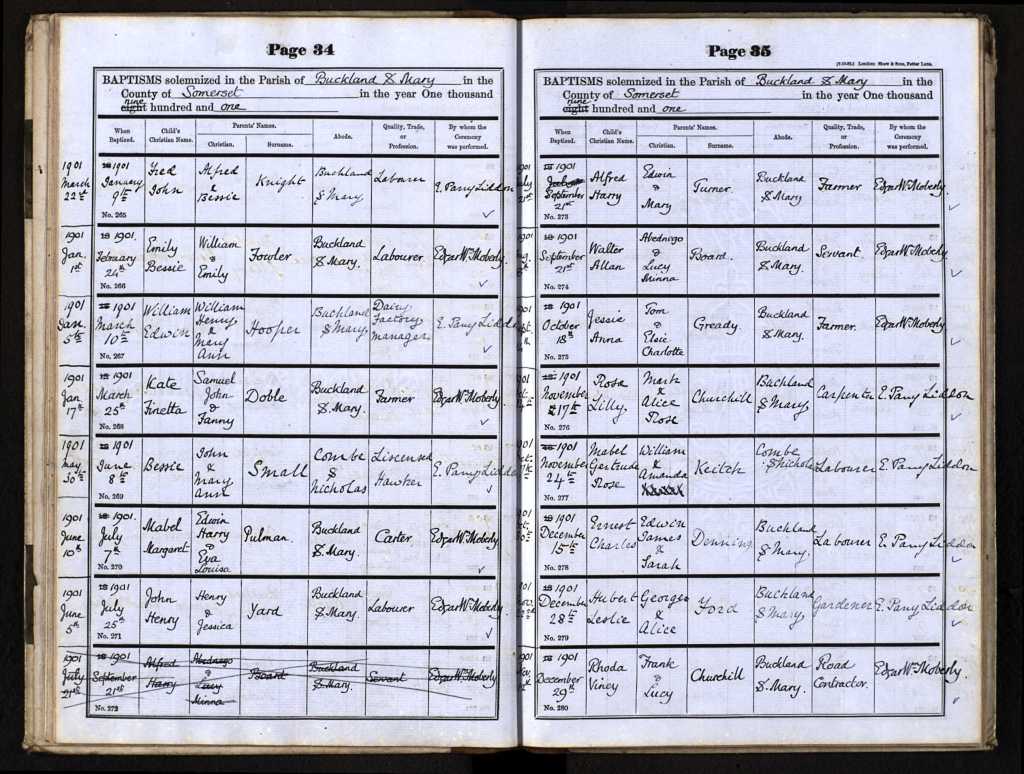 Page 34
BAPTISMS solemnized in the Parish of Buckland S. Mary in the
County of Somerset in the year One thousand
eight nine hundred and one
When Baptized. Child's Christian Name. Parents' Names. Christian. Surname. Abode. Quality, Trade, or Profession. By whom the Ceremony was performed.
1901 March 22nd
1901 January 9th No. 265 Fred John Alfred & Bessie Knight Buckland S. Mary Labourer
1901 Jan. 1st
1901. February 24th No. 266 Emily Bessie William & Emily Fowler Buckland S. Mary. Labourer. Edgar W. Moberly.
1901 Jan. 5th
1901 March 10th No. 267 William Edwin William Henry & Mary Ann Hooper Buckland S. Mary Dairy Factory Manager
1901 Jan 17th
1901 March 25th No. 268 Kate Finetta Samuel John & Fanny Doble Buckland S. Mary. Farmer Edgar W. Moberly
1901 May 30th
1901 June 8th No. 269 Bessie John & Mary Ann Small Combe S. Nicholas Liscensed Hawker
1901 June 10th
1901. July 7th No. 270 Mabel Margaret Edwin Harry & Eva Louisa Pulman. Buckland S. Mary. Carter Edgar W. Moberly
1901 June 5th
1901 July 25th No. 271 John Henry Henry & Jessica Yard Buckland S. Mary. Labourer Edgar W. Moberly
1901 July 21st
1901 September 21st No. 272 Alfred Harry Abednego & Lucy Minna Board Buckland S. Mary. Servant Edgar W. Moberly
Page 35
[7-10-95.] London: Shaw & Sons, Fetter Lane.
BAPTISMS solemnized in the Parish of Buckland S. Mary in the
County of Somerset in the year One thousand
eight nine hundred and one
When Baptized. Child's Christian Name. Parents' Names. Christian. Surname. Abode. Quality, Trade, or Profession. By whom the Ceremony was performed.
1901 July September 21st No. 273 Alfred Harry Edwin & Mary Turner. Buckland S. Mary Farmer Edgar W. Moberly
1901 September 21st No. 274 Walter Allan Abednego & Lucy Minna Board. Buckland S. Mary. Servant. Edgar W. Moberly
1901 October 18th No. 275 Jessie Anna Tom & Elsie Charlotte Gready. Buckland S. Mary. Farmer. Edgar W. Moberly
1901 November 17th No. 276 Rose Lilly Mark & Alice Rose Churchill Buckland S. Mary Carpenter
1901 November 24th No. 277 Mabel Gertrude Rose William & Amanda Keitch Combe S. Nicholas Labourer
1901 December 15th No. 278 Ernest Charles Edwin James & Sarah Denning Buckland S. Mary Labourer
1901 December 28th No. 279 Hubert Leslie George & Alice Ford Buckland S. Mary Gardener
1901 December 29th No. 280 Rhoda Viney Frank & Lucy Churchill Buckland S. Mary. Road Contractor. Edgar W. Moberly